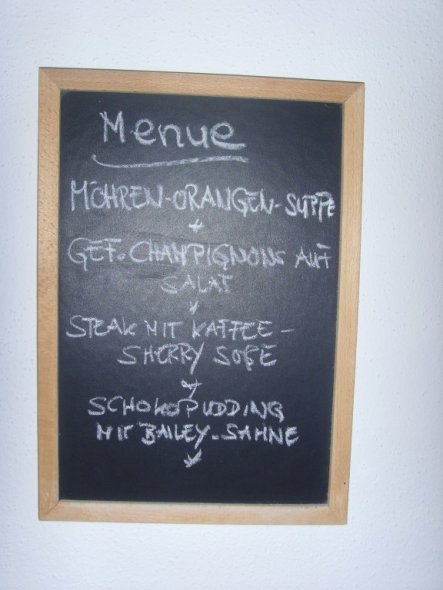 Menue
MÖHREN-ORANGEN-SUPPE
GEF. CHAMPIGNONS AUF
SALAT
STEAK MIT KAFFEE-
SHERRY SOßE
SCHOKOPUDDING
MIT BAILEY-SAHNE